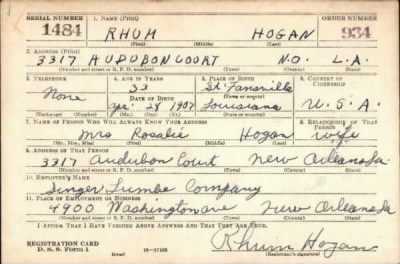 SERIAL NUMBER 1. NAME (Print) ORDER NUMBER
1484 RHUM HOGAN 934
(First) (Middle) (Last)
2. ADDRESS (Print)
3317 AUDUBON COURT N.O. L.A.
(Number and street or R. F. D. number) (Town) (County) (State)
3. TELEPHONE 4. AGE IN YEARS 5. PLACE OF BIRTH 6. COUNTRY OF CITIZENSHIP
33
None DATE OF BIRTH (Town or county)
Apr. 28 1907 Louisiana U.S.A.
(Exchange) (No.) (Mo.) (Day) (Yr.) (State or country)
7. NAME OF PERSON WHO WILL ALWAYS KNOW YOUR ADDRESS 8. RELATIONSHIP OF THAT PERSON
Mrs Rosalie Hogan wife
(Mr., Mrs., Miss) (First) (Middle) (Last)
9. ADDRESS OF THAT PERSON
3317 Audubon Court New Orleans La
(Number and street or R. F. D. number) (Town) (County) (State)
10. EMPLOYER'S NAME
Singer Lumbe Company
11. PLACE OF EMPLOYMENT OR BUSINESS
4900 Washington ave New Orleans La
(Number and street or R. F. D. number) (Town) (County) (State)
I AFFIRM THAT I HAVE VERIFIED ABOVE ANSWERS AND THAT THEY ARE TRUE.
Rhum Hogan
REGISTRATION CARD
D. S. S. Form 1 16—17105 (Registrant's signature)